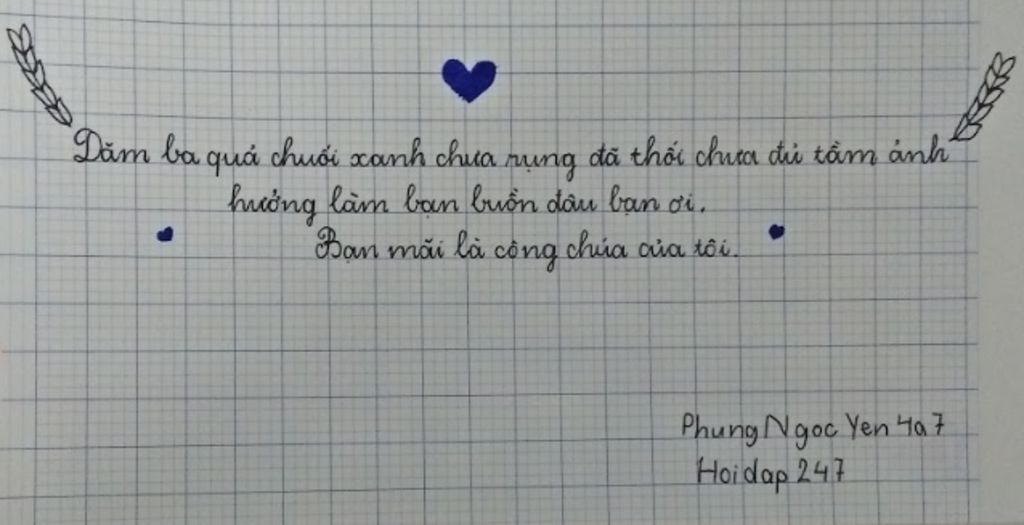 Dăm ba quả chuối xanh chưa rụng đã thối chưa đủ tầm ảnh
hưởng làm bạn buồn đâu bạn ơi.
Bạn mãi là công chúa của tôi.
Phung Ngoc Yen 4a7
Hoidap 247